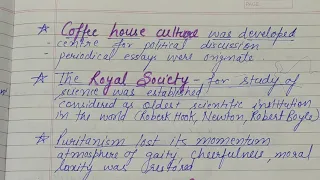 * Coffee house culture was developed
- centre for political discussion
- periodical essays were originate.
* The Royal Society - for study of
science was established
considered as oldest scientific institution
in the world (Robert Hook, Newton, Robert Boyle)
* Puritanism lost its momentum
atmosphere of gaity, cheerfulness, moral
laxity was restored